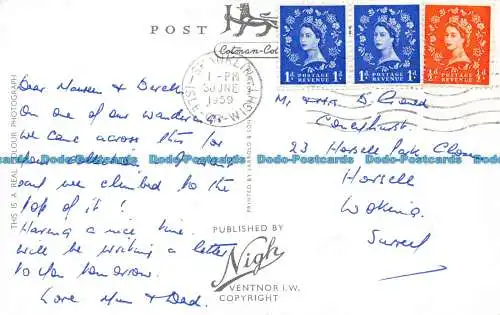 POST
Cotman-Col
SHANKLIN
1 - PM
30 JNE
1959
ISLE OF WIGHT
POSTAGE
REVENUE
1d
1d
POSTAGE
REVENUE
1d
1d
POSTAGE
REVENUE
½d
½d
THIS IS A REAL COLOUR PHOTOGRAPH
Dear &
On one of our wanderings
we came across this for
your collection.
and we climbed to the
top of it!
Having a nice time.
Will be writing a letter
to you tomorrow.
Love Mum & Dad.
PRINTED BY JARROLD & SONS
PUBLISHED BY
Nigh
VENTNOR I.W.
COPYRIGHT
Mr & Mrs D.
23 Horsell Park Close
Horsell
Woking.
Surrey
Dodo-Postcards Dodo-Postcards Dodo-Postcards Dodo-Postcards Dodo-Postcards